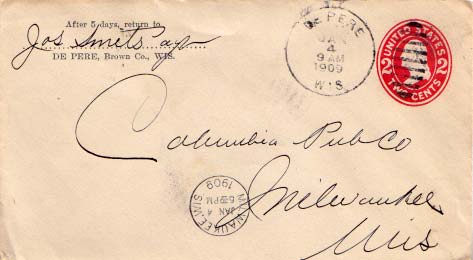 After 5 days, return to
Jos Smets Agt
DE PERE, Brown Co., WIS.
DE PERE
JAN
4
9 AM
1909
WIS.
UNITED STATES
2 2
TWO CENTS
Columbia Pub Co
Milwaukee
Wis
MILWAUKEE WIS
JAN 4
PM
1909